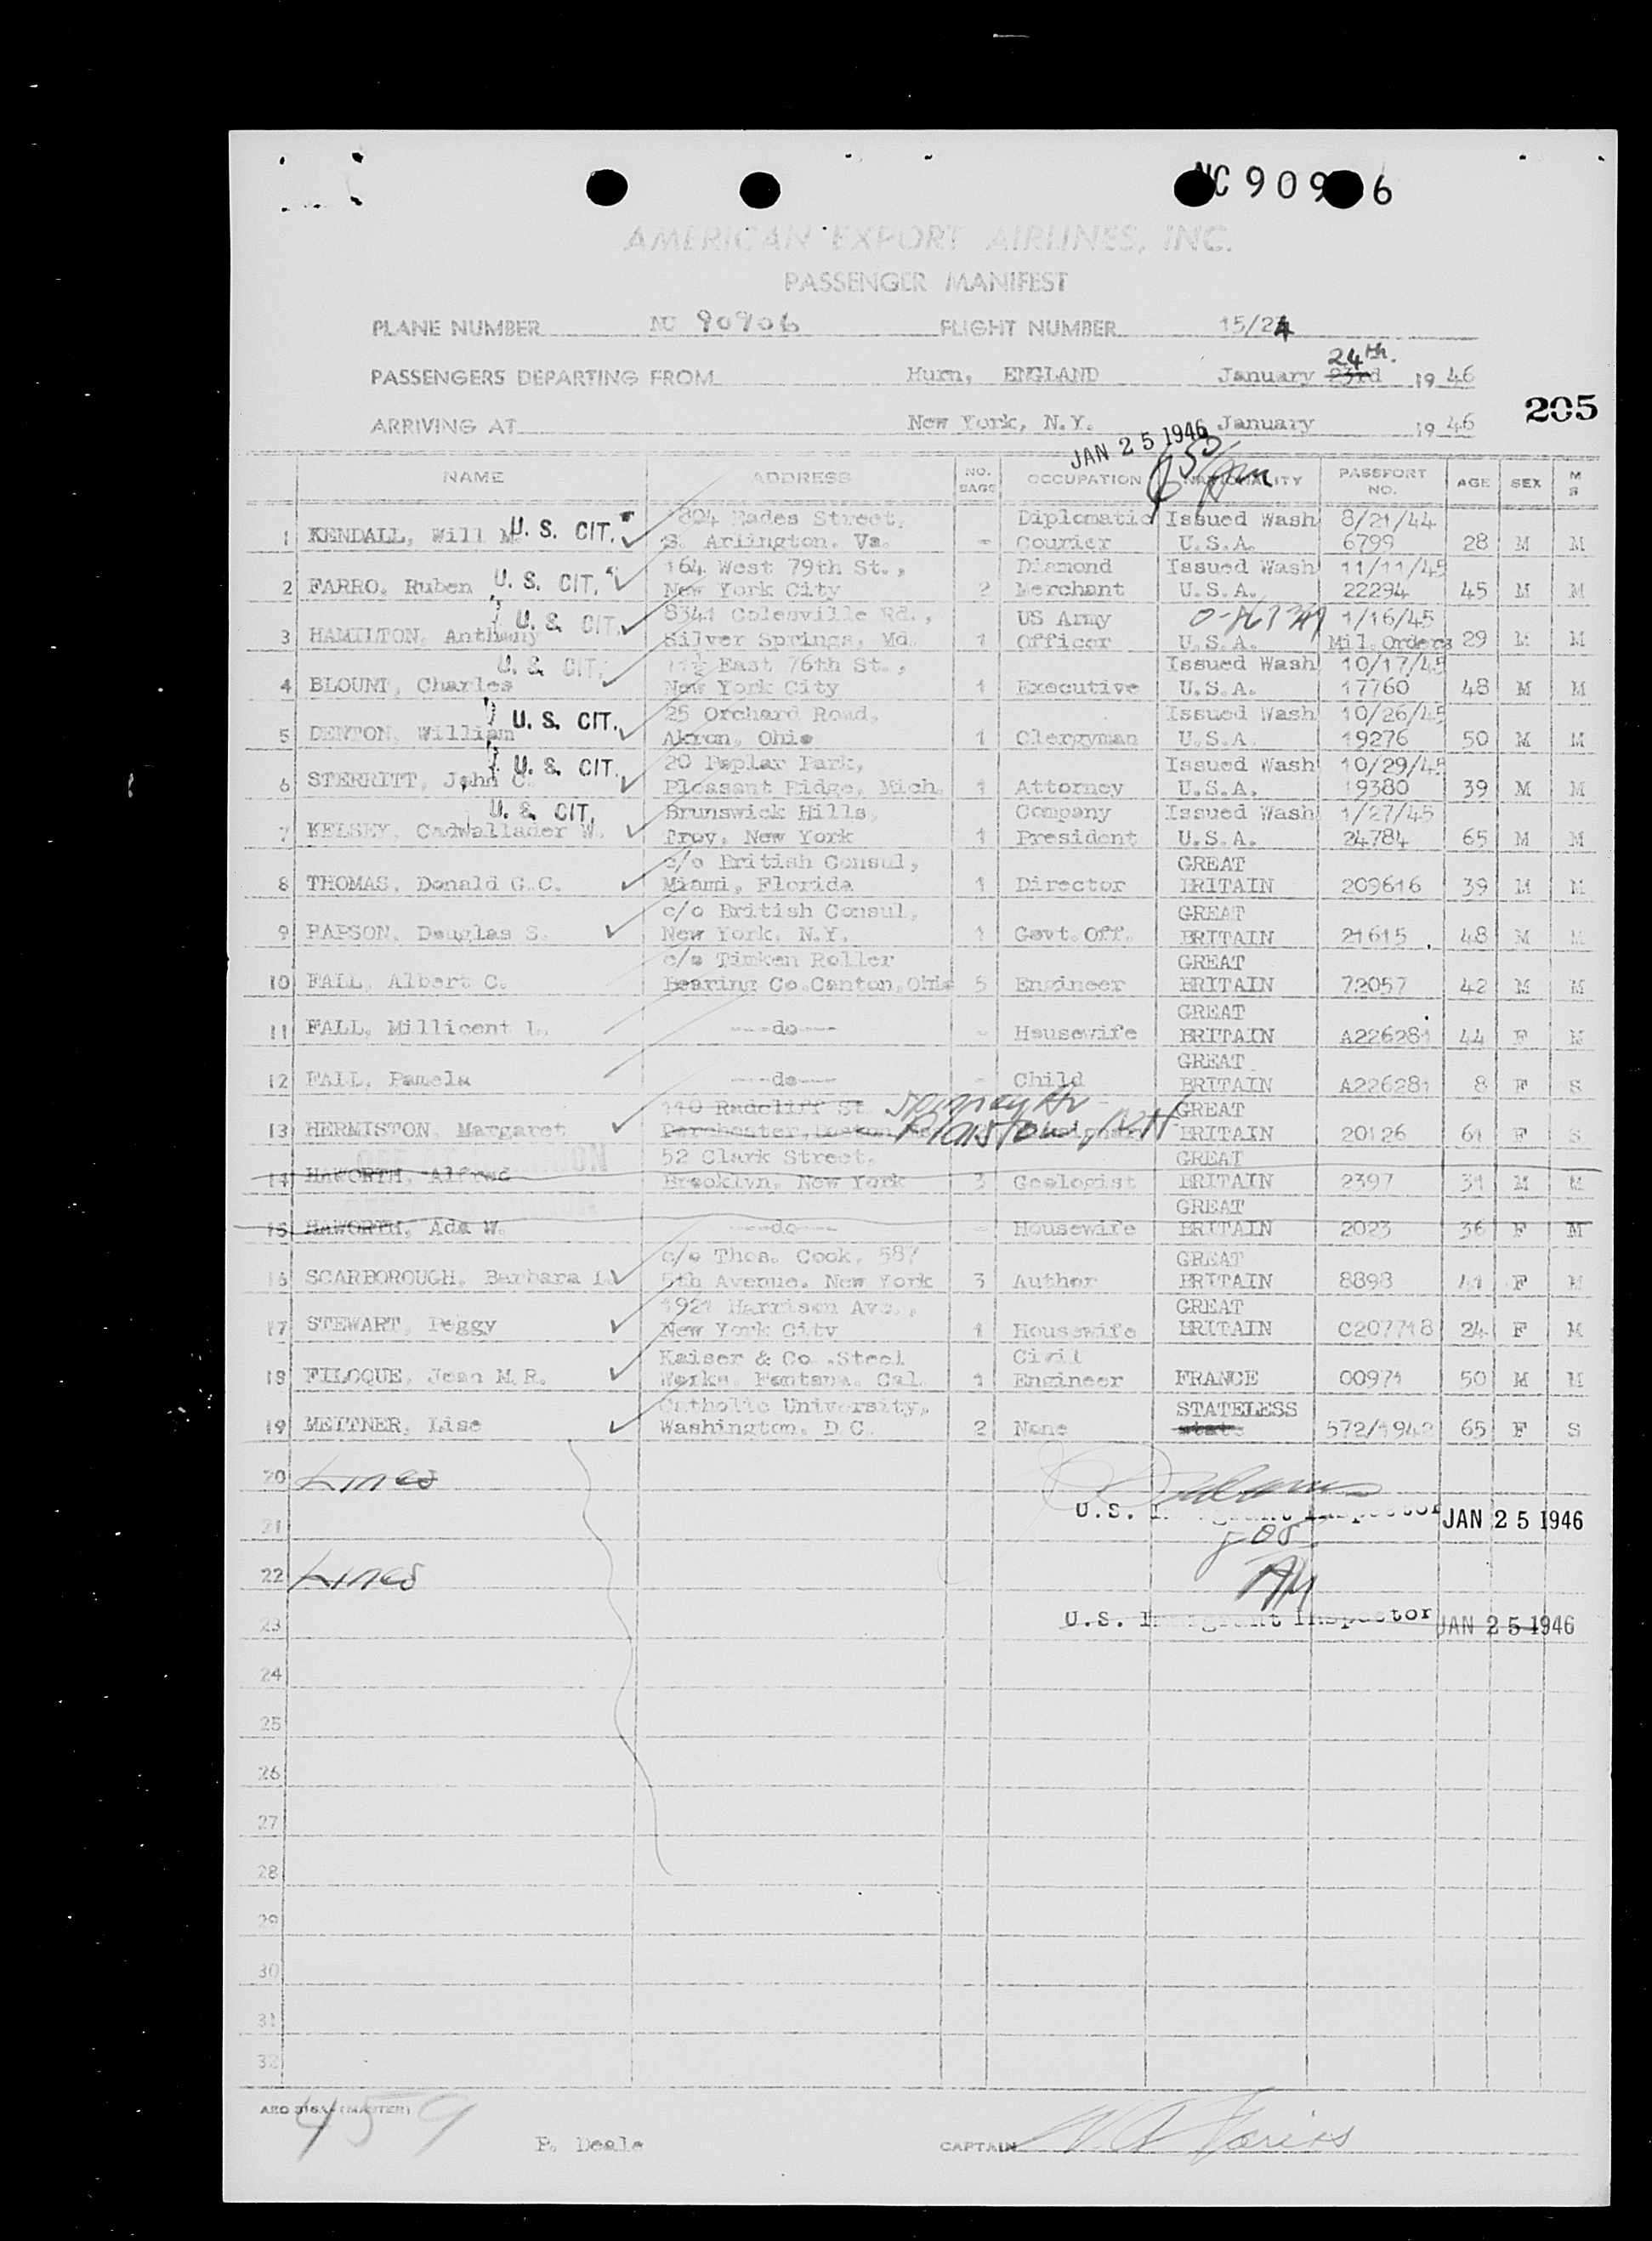 NC 909 6
AMERICAN EXPORT AIRLINES, INC.
PASSENGER MANIFEST
PLANE NUMBER NC 90906 FLIGHT NUMBER 15/24
PASSENGERS DEPARTING FROM Hurn, ENGLAND January 23rd 24th. 1946
205
ARRIVING AT New York, N.Y. January 1946
JAN 25 1946
NAME ADDRESS NO. BAGS OCCUPATION NATIONALITY PASSPORT NO. AGE SEX M S
1804 Eades Street, Diplomatic Issued Wash 8/21/44
1 KENDALL, Will M. U. S. CIT. S. Arlington. Va. - Courier U.S.A. 6799 28 M M
164 West 79th St., Diamond Issued Wash 11/11/45
2 FARRO, Ruben U. S. CIT. New York City 2 Merchant U.S.A. 22294 45 M M
8341 Colesville Rd., US Army 1/16/45
3 HAMILTON, Anthony U. S. CIT. Silver Springs, Md. 1 Officer U.S.A. Mil.Orders 29 M M
East 76th St., Issued Wash 10/17/45
4 BLOUNT, Charles U. S. CIT. New York City 1 Executive U.S.A. 17760 48 M M
25 Orchard Road, Issued Wash 10/26/45
5 DENTON, William U. S. CIT. Akron, Ohio 1 Clergyman U.S.A. 19276 50 M M
20 Poplar Park, Issued Wash 10/29/45
6 STERRITT, John C. U. S. CIT. Pleasant Ridge, Mich. 1 Attorney U.S.A. 19380 39 M M
Brunswick Hills, Company Issued Wash 1/27/45
7 KELSEY, Cadwallader W. U. S. CIT. Troy, New York 1 President U.S.A. 24784 65 M M
c/o British Consul, GREAT
8 THOMAS, Donald G.C. Miami, Florida 1 Director BRITAIN 209616 39 M M
c/o British Consul, GREAT
9 PAPSON, Douglas S. New York, N.Y. 1 Govt.Off. BRITAIN 21615 48 M M
c/o Timken Roller GREAT
10 FALL, Albert C. Bearing Co.Canton,Ohio 5 Engineer BRITAIN 72057 42 M M
GREAT
11 FALL, Millicent L. ---do--- - Housewife BRITAIN A226281 44 F M
GREAT
12 FALL, Pamela ---do--- - Child BRITAIN A226281 8 F S
110 Radcliff St GREAT
13 HERMISTON, Margaret Plaistow, N.H BRITAIN 20126 61 F S
52 Clark Street, GREAT
14 HAWORTH, Alfred Brooklyn, New York 3 Geologist BRITAIN 2397 31 M M
GREAT
15 HAWORTH, Ada W. ---do--- - Housewife BRITAIN 2023 36 F M
c/o Thos. Cook, 587 GREAT
16 SCARBOROUGH, Barbara 5th Avenue, New York 3 Author BRITAIN 8898 41 F M
1921 Harrison Ave., GREAT
17 STEWART, Peggy New York City 1 Housewife BRITAIN C207718 24 F M
Kaiser & Co.Steel Civil
18 FILOQUE, Jean M.R. Works, Fontana, Cal. 1 Engineer FRANCE 00971 50 M M
Catholic University, STATELESS
19 MEITNER, Lise Washington, D.C. 2 None 572/1942 65 F S
20 Lines
U.S. Immigrant Inspector JAN 25 1946
21
22 Lines
23 U.S. Immigrant Inspector JAN 25 1946
24
25
26
27
28
29
30
31
32
459
P. Deale CAPTAIN